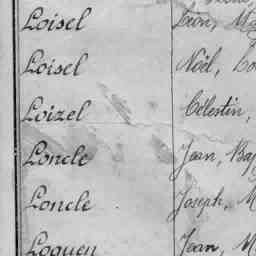 Loisel Léon,
Loisel Noël,
Loizel Célestin,
Loncle Jean, Bap
Loncle Joseph, M
Loguen Jean, M